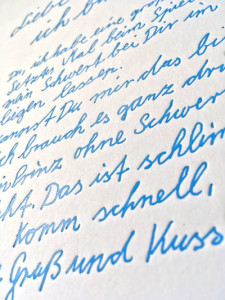 Liebe
ich b
Du, ich habe eine gro
letztes Mal beim Spiele
mein Schwert bei Dir im
liegen lassen.
annst Du mir das bi
ch brauch es ganz dri
prinz ohne Schwer
ht. Das ist schlim
Komm schnell,
Gruß und Kuss